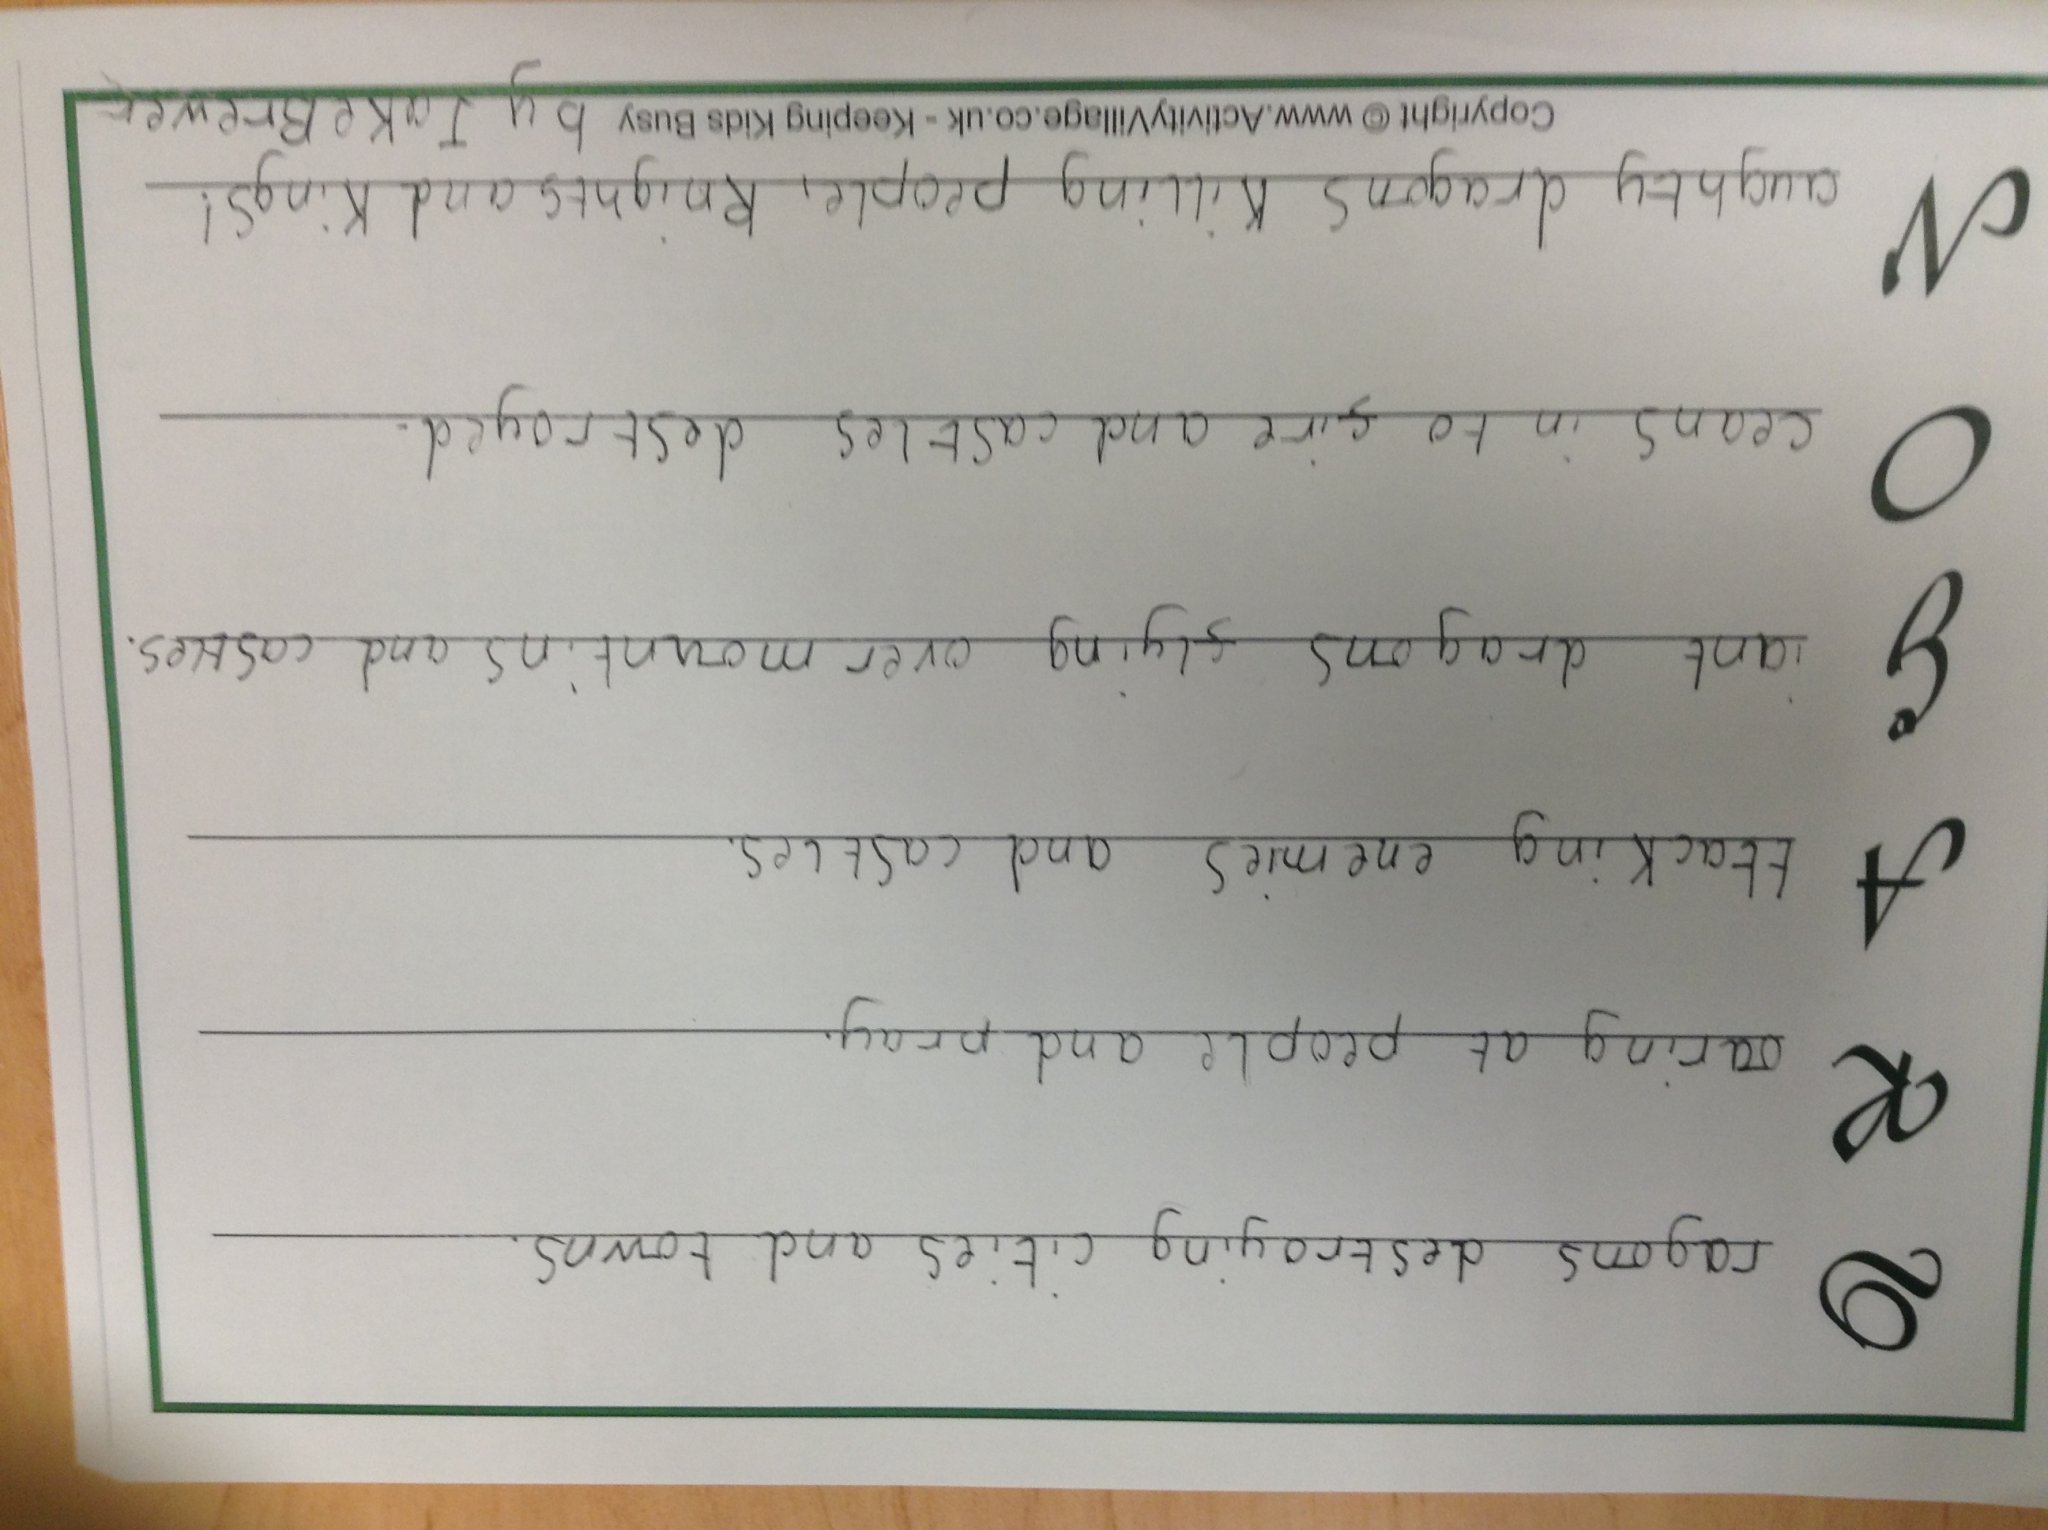 Dragons destroying cities and towns.
Roaring at people and pray.
Attacking enemies and castles.
Giant dragons flying over mountins and castles.
Oceans in to fire and castles destroyed.
Naughty dragons killing people, Knights and Kings!
Copyright © www.ActivityVillage.co.uk - Keeping Kids Busy by Jake Brewer